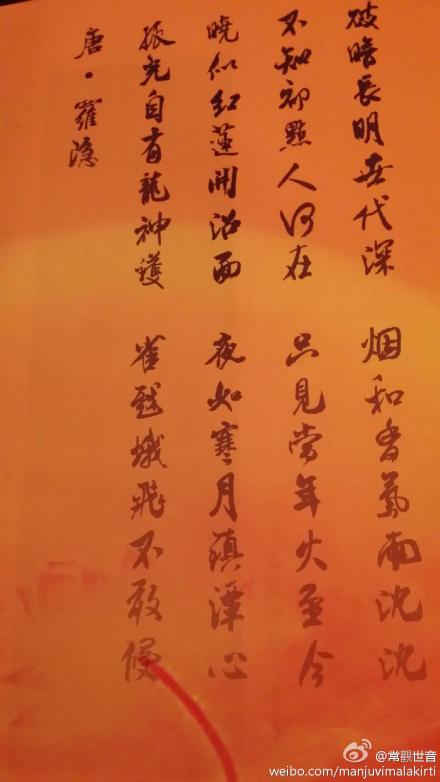 破暗長明世代深 烟和香氣兩沈沈
不知初點人何在 只見當年火至今
曉似紅蓮開沼面 夜如寒月鎮潭心
孤光自有龍神護 雀戲蛾飛不敢侵
唐·羅隐
@常觀世音
weibo.com/manjuvimalakirti